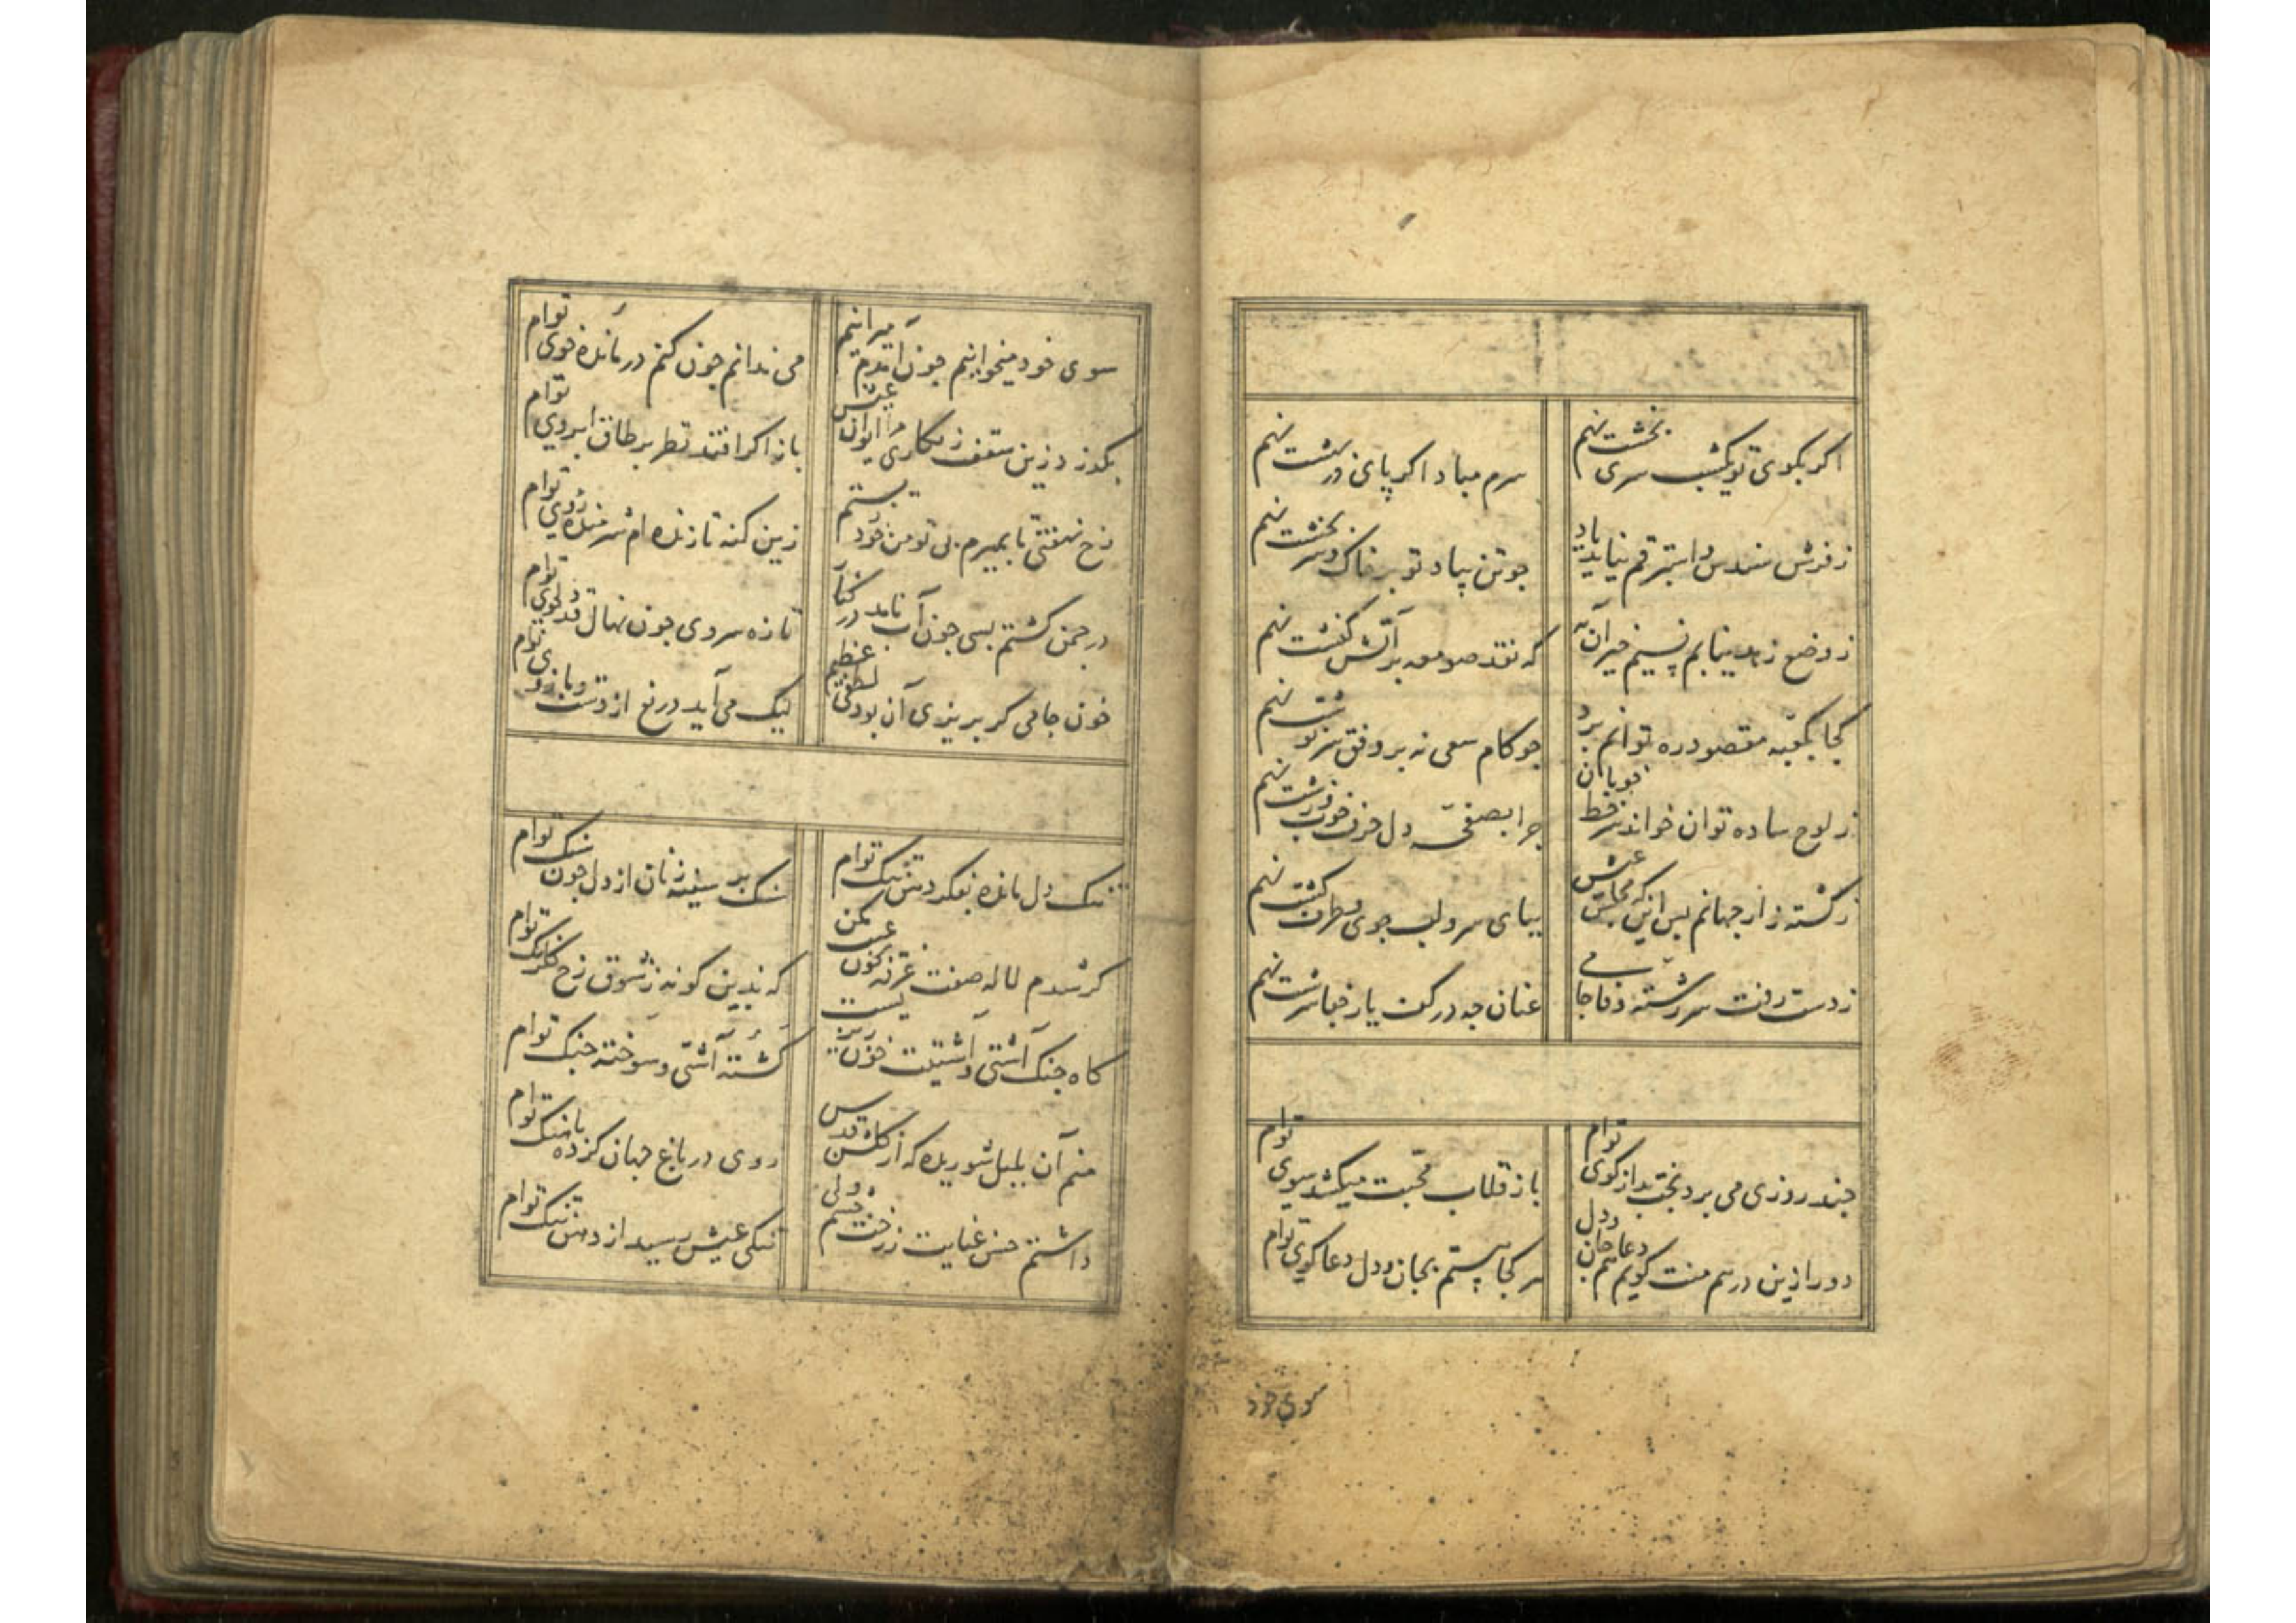 اکر بکوی تو یکشب سری بخشت نهم
سرم مباد اکر پای در بهشت نهم
ز فرش سندس و استبرقم نیاید یاد
جو تن بیاد تو بر خاک و سر بخشت نهم
ز وضع زهد نیابم نسیم خیر آن به
که نقد صومعه بر آتش کنشت نهم
کجا بکعبه مقصود ره توانم برد
جو کام سعی نه بر وفق سرنوشت نهم
ز لوح ساده توان خواند سر خط خوبان
جرا بصفحه دل حرف خوب و زشت نهم
ز کشته زار جهانم بس این که مجلس عیش
بپای سرو لب جوی و طرف کشت نهم
ز دست رفت سر رشته وفا جامی
عنان جه در کف یار جفا سرشت نهم
جند روزی می برد بختبد از کوی توام
باز قلاب محبت میکشد سوی توام
دور ازین درهم منت کویم دعا هم جان و دل
هر کجا هستم بجان و دل دعا کوی توام
سوی خود
سوی خود میخوانیم جون آمدم میرانیم
می ندانم جون کنم درمانده خوی توام
بکذرد زین سقف زنکاری مرا ایوان عیش
باز اکر افتد نظر بر طاق ابروی توام
رخ نهفتی تا بمیرم بی تو من خود نیستم
زین کنه تا زنده ام شرمنده روی توام
در جمن کشتم بسی جون آب نامد در کنار
تازه سروی جون نهال قد دلجوی توام
خون جامی کر بریزی آن بود لطفی عظیم
لیک می آید دریغ از دست و بازوی توام
تنک دل مانده بفکر دهن تنک توام
سنک بر سینه زنان از دل جون سنک توام
کر شدم لاله صفت غرقه بخون عیب مکن
که بدین کونه ز شوق رخ کلرنک توام
کاه جنک آشتی و آشتیت خون ریزیست
کشته آشتی و سوخته جنک توام
منم آن بلبل شوریده که از کلشن قدس
روی در باغ جهان کرده بآهنک توام
داشتم حسن عنایت ز رخت جشم ولی
تنکی عیش رسید از دهن تنک توام